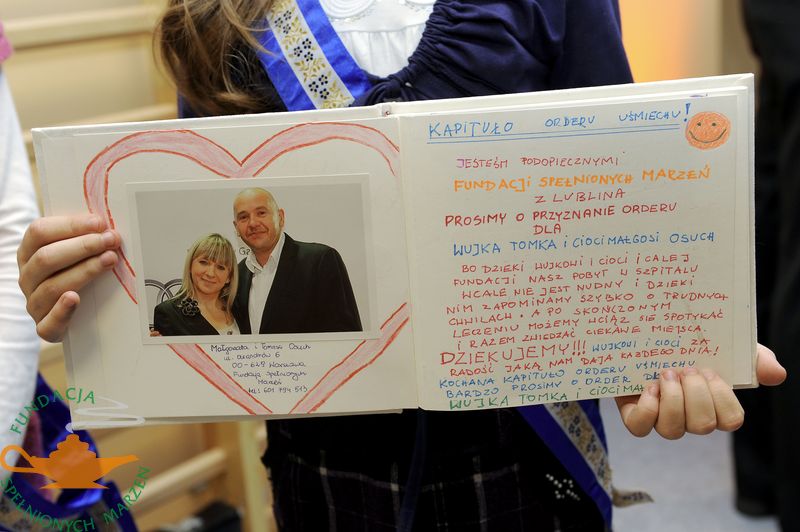 KAPITUŁO ORDERU UŚMIECHU!
JESTEŚM PODOPIECZNYMI
FUNDACJI SPEŁNIONYCH MARZEŃ
Z LUBLINA
PROSIMY O PRZYZNANIE ORDERU
DLA
WUJKA TOMKA I CIOCI MAŁGOSI OSUCH
BO DZIĘKI WUJKOWI I CIOCI I CAŁEJ
FUNDACJI NASZ POBYT W SZPITALU
WCALE NIE JEST NUDNY I DZIĘKI
NIM ZAPOMINAMY SZYBKO O TRUDNYCH
CHWILACH. A PO SKOŃCZONYM
LECZENIU MOŻEMY WCIĄŻ SIĘ SPOTYKAĆ
I RAZEM ZWIEDZAĆ CIEKAWE MIEJSCA.
DZIĘKUJEMY!!! WUJKOWI I CIOCI ZA
RADOŚĆ JAKĄ NAM DAJĄ KAŻDEGO DNIA!
KOCHANA KAPITUŁO ORDERU UŚMIECHU
BARDZO PROSIMY O ORDER DLA
WUJKA TOMKA I CIOCI MAŁGOSI
Małgorzata i Tomasz Osuch
00-647 Warszawa
Fundacja Spełnionych
Marzeń
tel: 601 794 513
FUNDACJA
SPEŁNIONYCH MARZEŃ